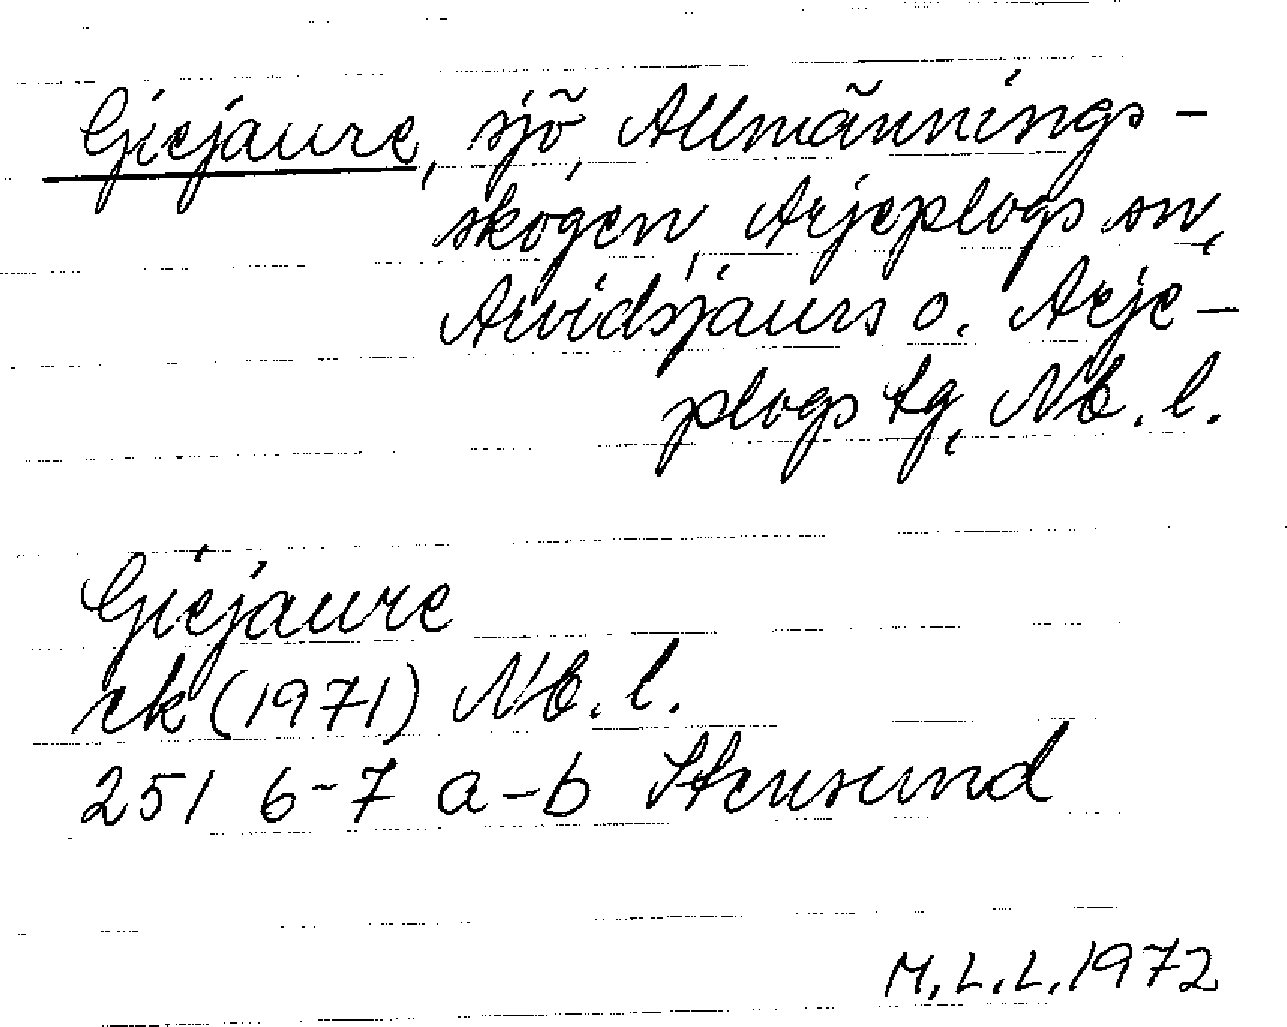 Giejaure, sjö, Allmännings-
skogen, Arjeplogs sn,
Arvidsjaurs o. Arje-
plogs tg, Nb. l.
Giejaure
rk (1971) Nb. l.
251 6-7 a-b Stensund
M.L.L. 1972